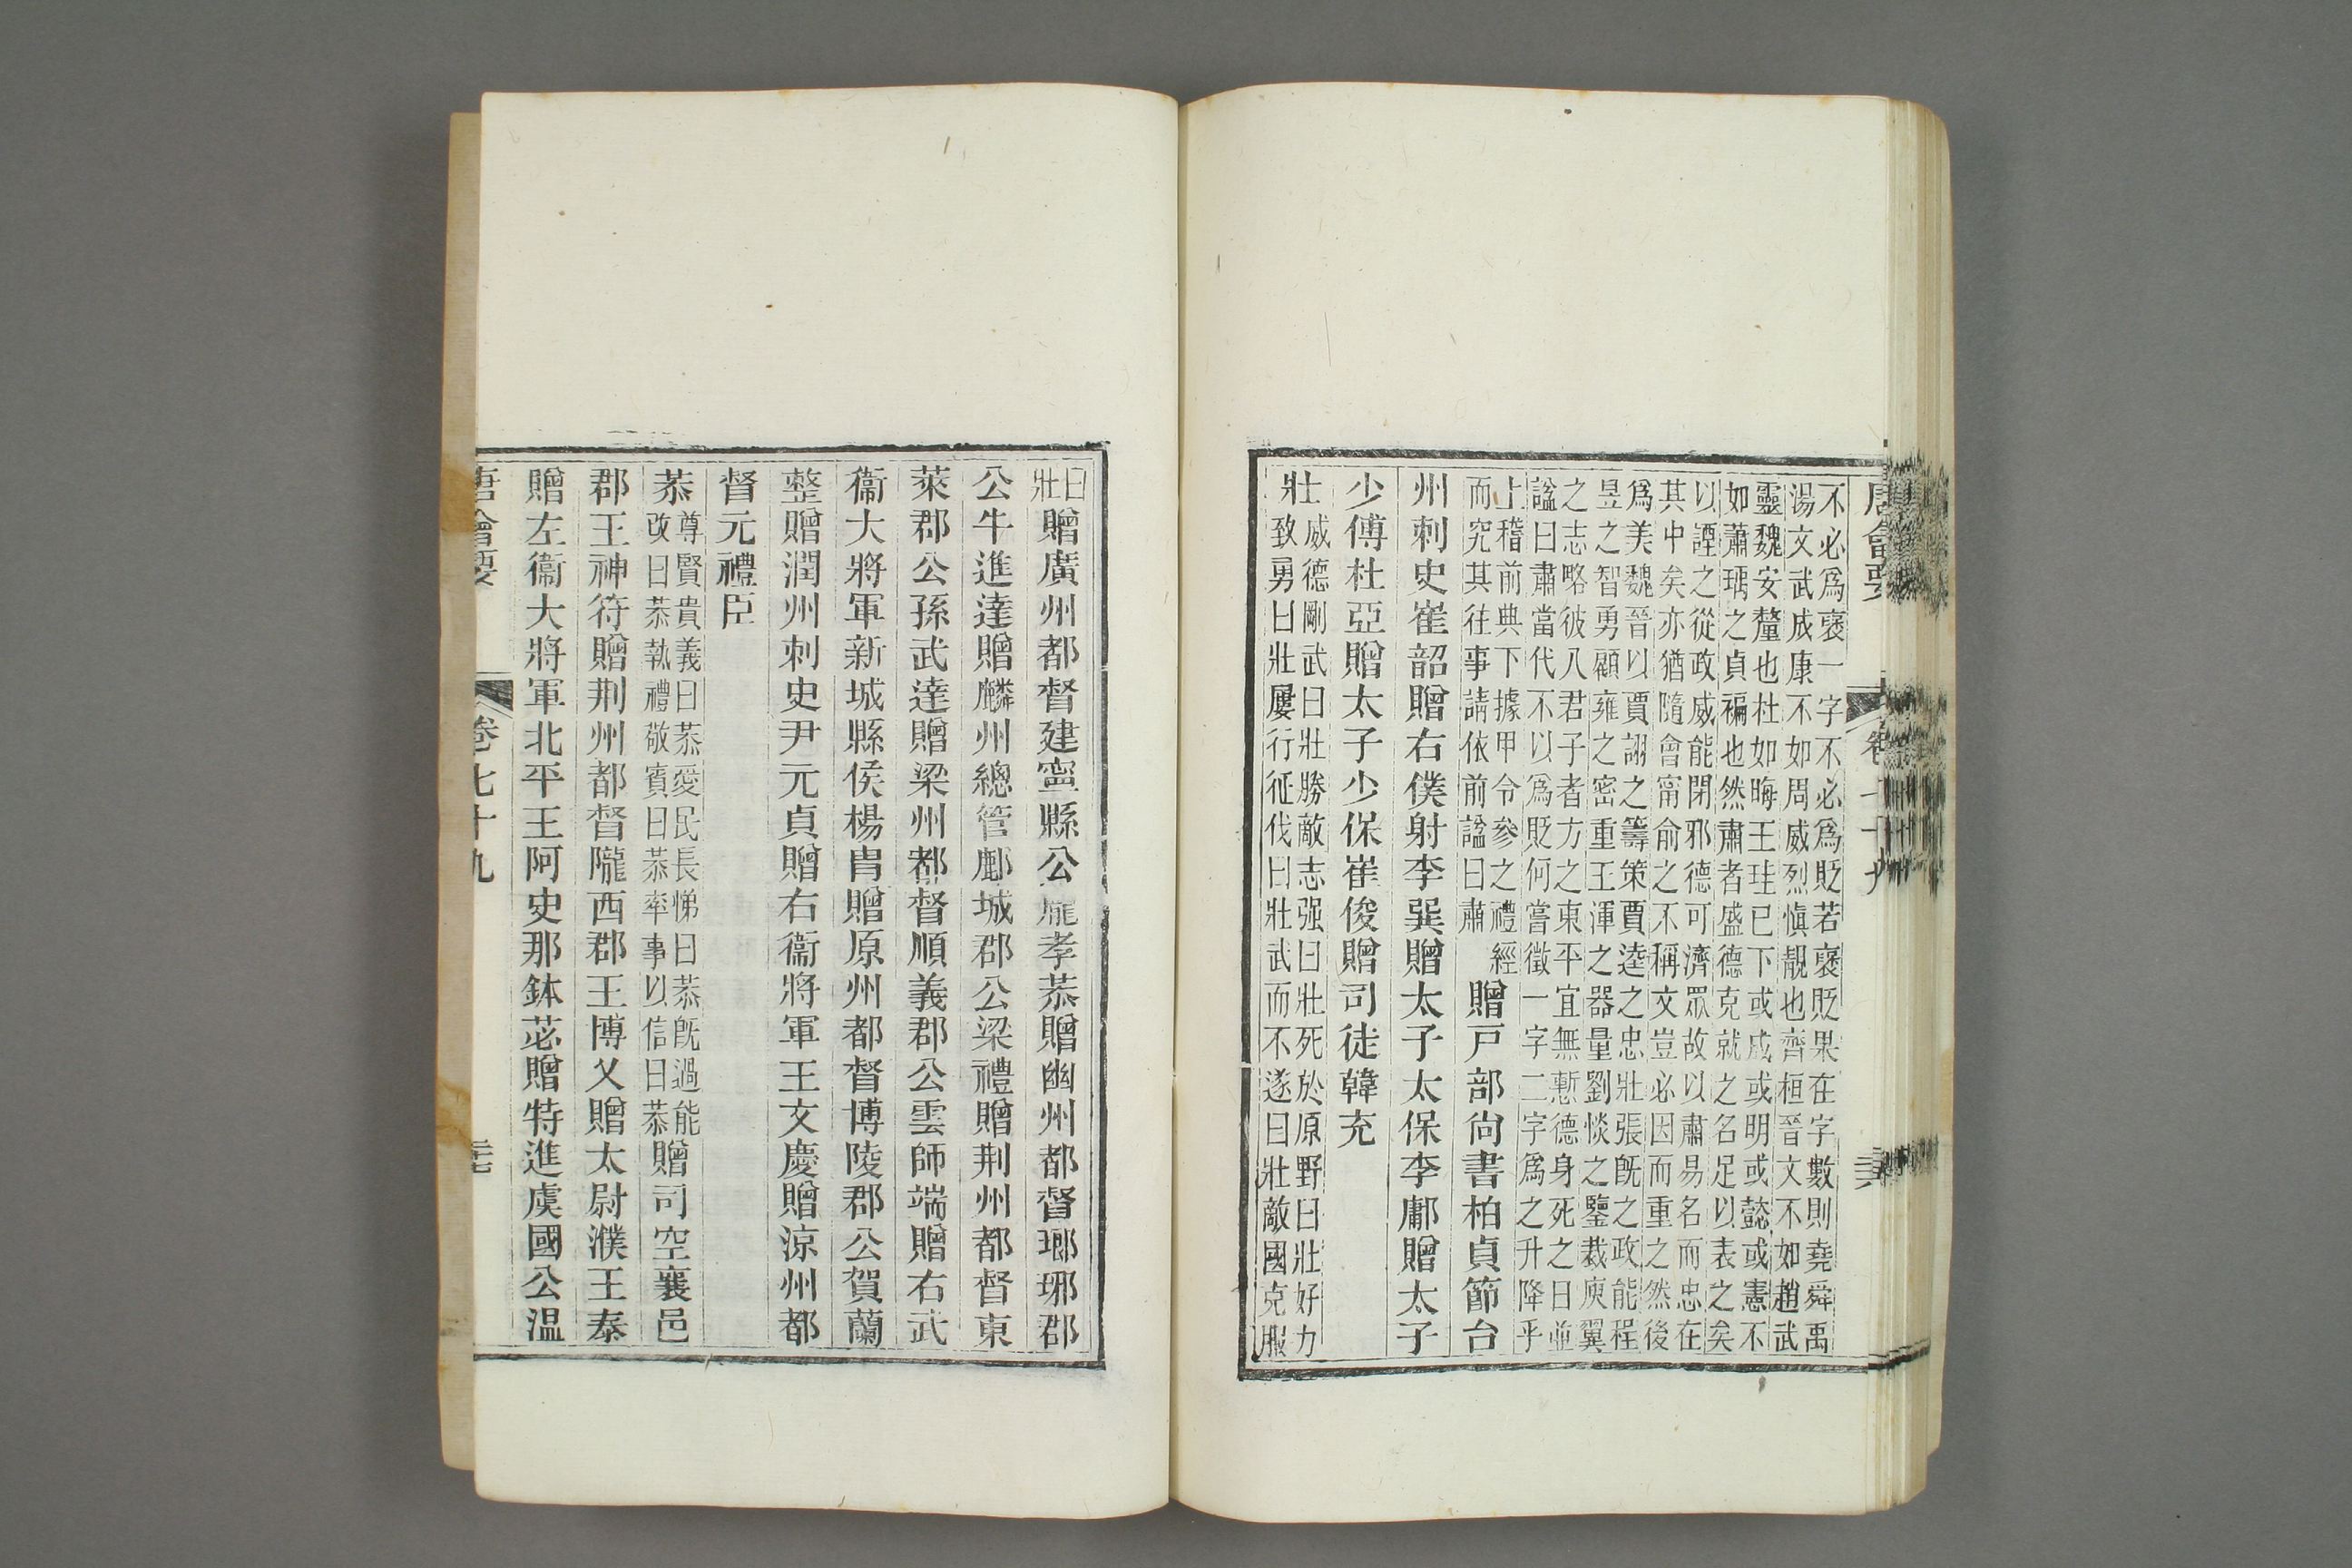 唐會要 卷七十九
不必爲褒一字不必爲貶若褒貶果在字數則堯舜禹
湯文武成康不如周威烈愼靚也齊桓晉文不如趙武
靈魏安釐也杜如晦王珪已下或成或明或懿或憲不
如蕭瑀之貞褊也然肅者盛德克就之名足以表之矣
以諲之從政威能閉邪德可濟眾故以肅易名而忠在
其中矣亦猶隨會甯俞之不稱文豈必因而重之然後
爲美魏晉以賈詡之籌策賈逵之忠壯張旣之政能程
昱之智勇顧雍之密重王渾之器量劉惔之鑒裁庾翼
之志略彼八君子者方之東平宜無慙德身死之日竝
諡曰肅當代不以爲貶何嘗徵一字二字爲之升降乎
上稽前典下據甲令參之禮經
而究其往事請依前諡曰肅
贈戸部尙書柏貞節台
州刺史崔韶贈右僕射李巽贈太子太保李鄘贈太子
少傅杜亞贈太子少保崔俊贈司徒韓充
壯
威德剛武曰壯勝敵志强曰壯死於原野曰壯好力
致勇曰壯屢行征伐曰壯武而不遂曰壯敵國克服
曰
壯
贈廣州都督建寧縣公龐孝恭贈幽州都督瑯琊郡
公牛進達贈麟州總管郕城郡公梁禮贈荆州都督東
萊郡公孫武達贈梁州都督順義郡公雲師端贈右武
衞大將軍新城縣侯楊胄贈原州都督博陵郡公賀蘭
整贈潤州刺史尹元貞贈右衞將軍王文慶贈涼州都
督元禮臣
恭
尊賢貴義曰恭愛民長悌曰恭旣過能
改曰恭執禮敬賓曰恭率事以信曰恭
贈司空襄邑
郡王神符贈荆州都督隴西郡王博乂贈太尉濮王泰
贈左衞大將軍北平王阿史那鉢苾贈特進虞國公温
唐會要 卷七十九